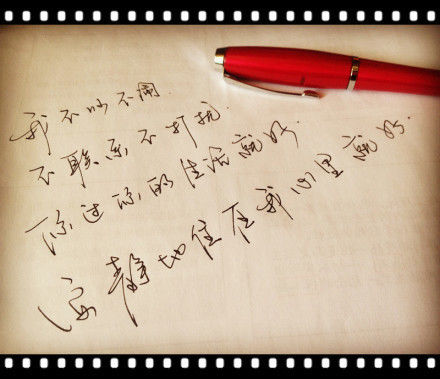 我不吵不闹.
不联系不打扰.
你过你的生活就好
安静地住在我心里就好.